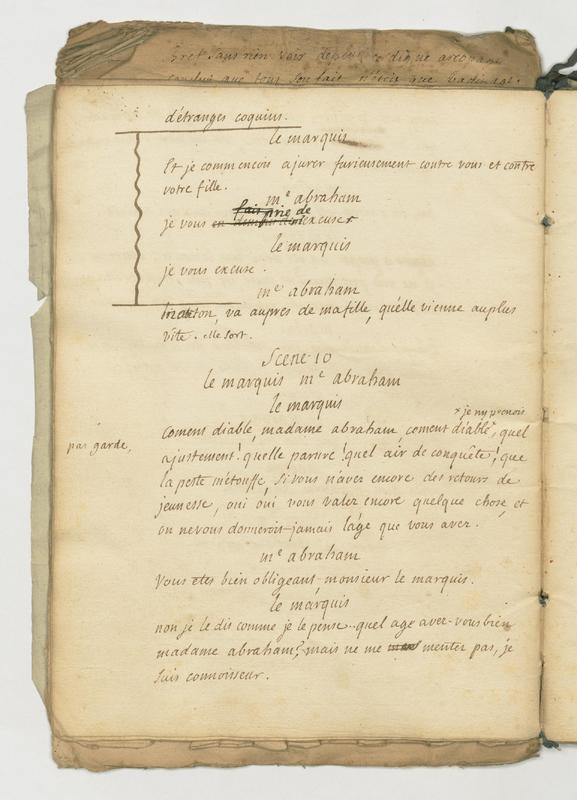 bret sans rien voir
conclu que tous son fait n'étoit que badinage.
d'étranges coquins.
le marquis
Et je commencois a jurer furieusement contre vous et contre
votre fille.
me abraham
fais prie de
je vous en excuser
le marquis
je vous excuse.
me abraham
va aupres de ma fille, qu'elle vienne au plus
vite. elle sort.
Scene 10
le marquis me abraham
le marquis
x je ny prenois
coment diable, madame abraham, coment diable x, quel
pas garde,
ajustement! quelle parure! quel air de conquête! que
la peste m'étouffe, si vous n'avez encore des retours de
jeunesse, oui oui vous valez encore quelque chose, et
on ne vous donneroit jamais l'âge que vous avez.
me abraham
Vous etes bien obligeant monsieur le marquis.
le marquis
non je le dis comme je le pense.. quel age avez-vous bien
madame abraham? mais ne me mentez pas, je
suis connoisseur.